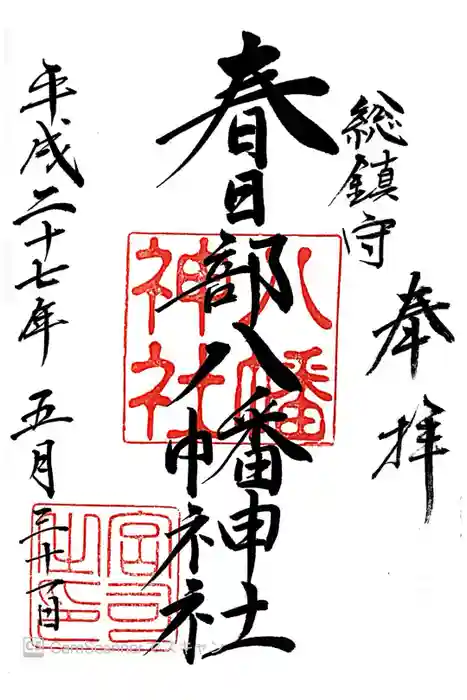 奉拝
総鎮守
春日部八幡神社
八幡
神社
平成二十七年 五月三十一日
宮司
之印
CamScanner でスキャン